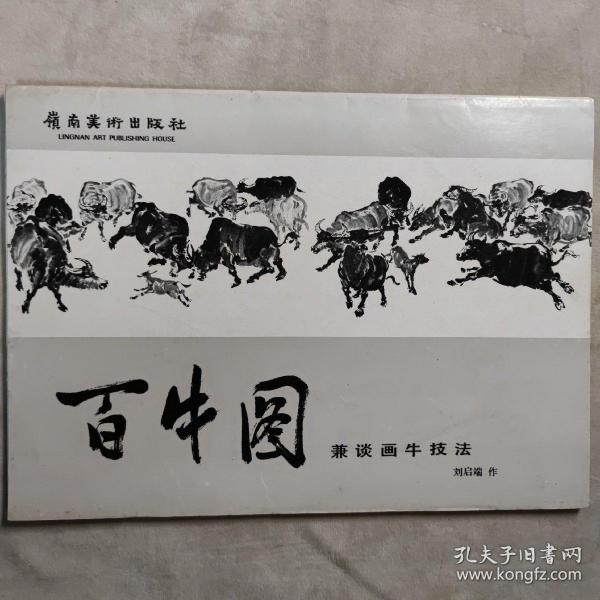 嶺南美術出版社
LINGNAN ART PUBLISHING HOUSE
百牛图
兼谈画牛技法
刘启端 作
孔夫子旧书网
www.kongfz.com